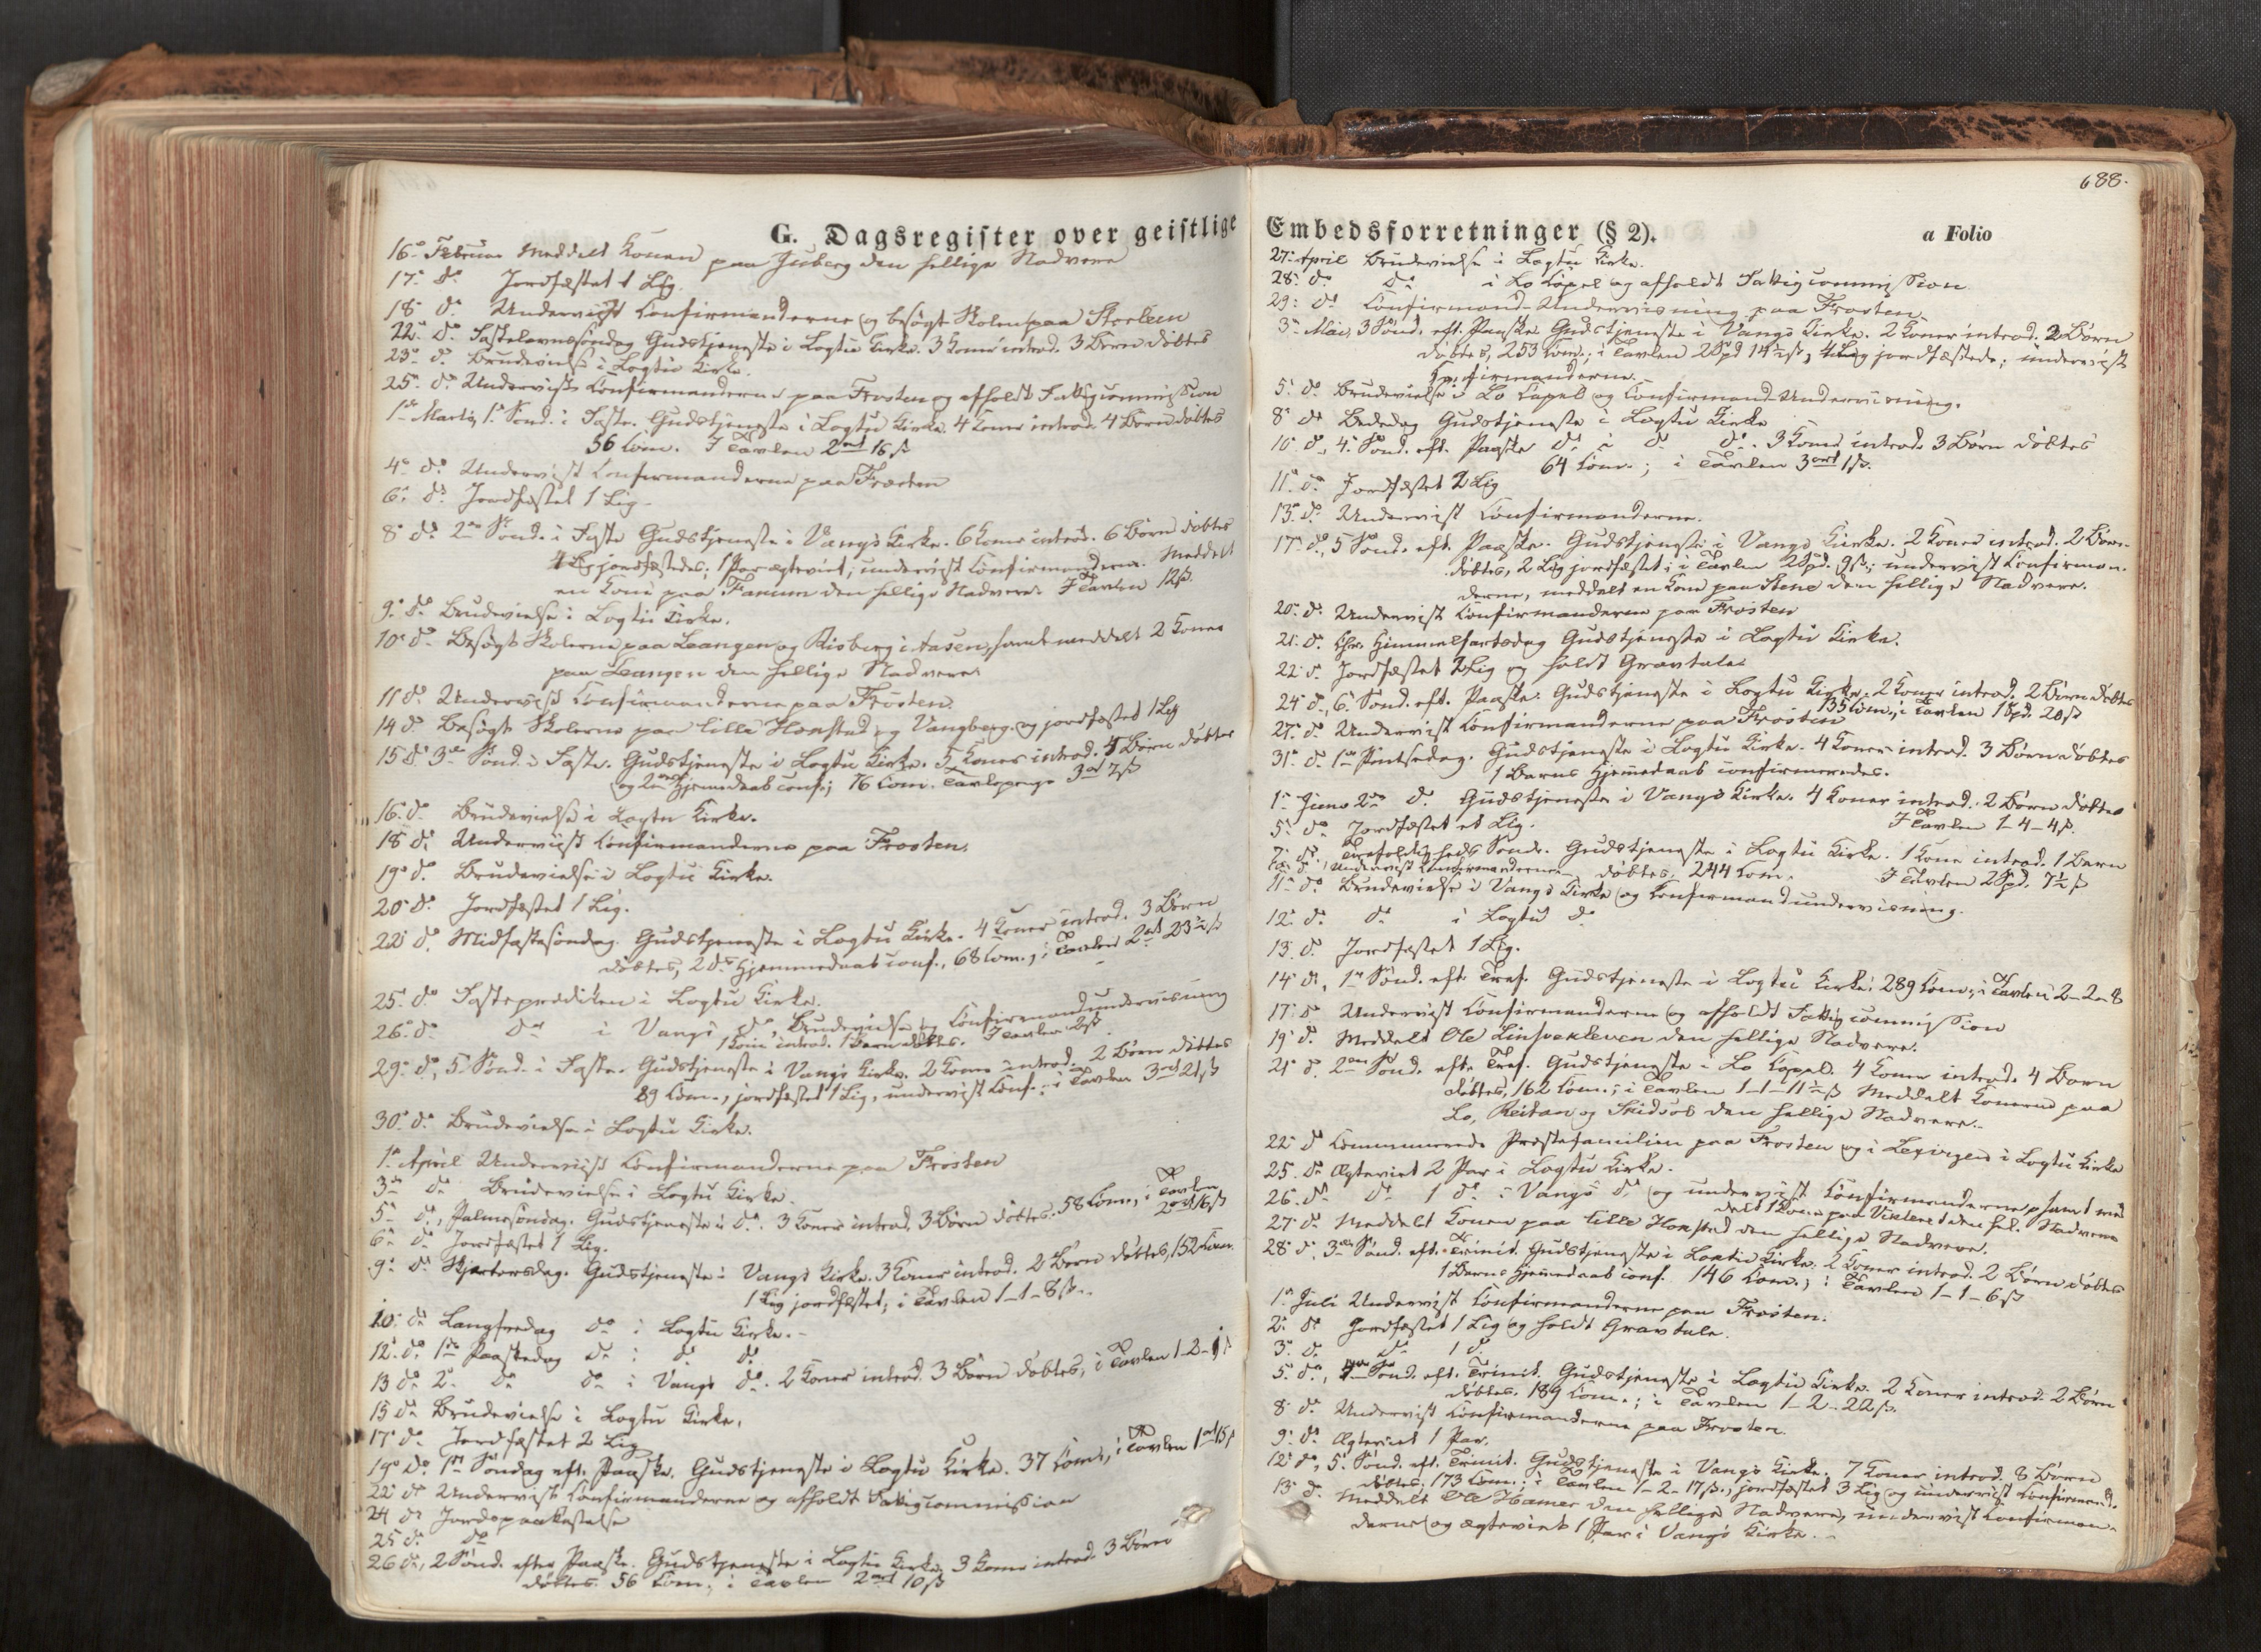 G. Dagsregister over geistlige
16de Februar Meddelt Konen paa Juberg den hellige Nadvere
17de do Jordfæstet 1 Lig.
18 do Undervist Confirmanderne og besøgt Skolen paa
22de do Fastelavnssøndag Gudstjeneste i Logtu Kirke. 3 Koner introd. 3 Børn døbtes
23de do Brudevielse i Logtu Kirke.
25de do Undervist Confirmanderne paa Frosten og afholdt Fattigcommission
1ste Marti, 1ste Sønd. i Faste. Gudstjeneste i Logtu Kirke. 4 Koner introd. 4 Børn døbtes
56 Com. I Tavlen 2 ort 16 ß
4de do Undervist Confirmanderne paa Frosten
6te do Jordfæstet 1 Lig.
8de do 2den Sønd. i Faste Gudstjeneste i Vangs Kirke. 6 Koner introd. 6 Børn døbtes
4 Lig jordfæstedes; 1 Par ægteviet; undervist Confirmanderne. Meddelt
en Kone paa Fanum den hellige Nadvere. I Tavlen 12 ß.
9de do Brudevielse i Logtu Kirke.
10de do Besøgt Skolerne paa Leangen og Risberg i Aasen, samt meddelt 2 Koner
paa Leangen den hellige Nadvere.
11 do Undervist Confirmanderne paa Frosten.
14 do Besøgt Skolerne paa lille Hanstad og Vangberg og jordfæstet 1 Lig
15 do 3die Sønd. i Faste. Gudstjeneste i Logtu Kirke. 5 Koner introd. 4 Børn døbtes
og 2des Hjemmedaab conf.; 76 Com. Tavlepenge 3 ort 7 ß
16de do Brudevielse i Logtu Kirke.
18 do Undervist Confirmanderne paa Frosten.
19de do Brudevielse i Logtu Kirke.
20 do Jordfæstet 1 Lig.
22 do Midfastesøndag. Gudstjeneste i Logtu Kirke. 4 Koner introd. 3 Børn
døbtes, 2 ds Hjemmedaab conf., 68 Com.; i Tavlen 2 ort 23½ ß
25. do Fasteprædiken i Logtu Kirke.
26de do do i Vangs do, Brudevielse og Confirmandundervisning
1 Kone introd. 1 Barn døbtes. I Tavlen 2 ß.
29de do, 5 Sønd. i Faste. Gudstjeneste i Vangs Kirke. 2 Koner introd. 2 Børn døbtes
89 Com., jordfæstet 1 Lig, undervist Conf.; i Tavlen 3 ort 21 ß
30 do Brudevielse i Logtu Kirke.
1ste April Undervist Confirmanderne paa Frosten
3die do Brudevielse i Logtu Kirke.
5te do, Palmesøndag. Gudstjeneste i do. 3 Koner introd. 3 Børn døbtes. 58 Com.; i Tavlen
2 ort 16 ß
6te do Jordfæstet 1 Lig.
9de do Skjertorsdag. Gudstjeneste i Vangs Kirke. 3 Koner introd. 2 Børn døbtes, 152 Com.
1 Lig jordfæstet; i Tavlen 1-1-8 ß.
10 do Langfredag do i Logtu Kirke.
12 do 1ste Paaskedag do i do do
13 do 2. do do i Vangs do. 2 Koner introd. 3 Børn døbtes, i Tavlen 1-2-9 ß
15 do Brudevielse i Logtu Kirke.
17 do Jordfæstet 2 Lig
19de do 1ste Søndag eft. Paaske. Gudstjeneste i Logtu Kirke. 37 Com., i Tavlen 1 ort 15 ß
22 do Undervist Confirmanderne og afholdt Fattigcommission
24 do Jordspaakastelse
25 do do
26 do, 2 Sønd. efter Paaske. Gudstjeneste i Logtu Kirke. 3 Koner introd. 3 Børn
døbtes. 56 Com.; i Tavlen 2 ort 10 ß
688.
Embedsforretninger (§ 2).
a Folio
27. April Brudevielse i Logtu Kirke.
28. do do i Lo Capel og afholdt Fattigcommission
29. do Confirmand-Undervisning paa Frosten.
3die Mai, 3 Sønd. eft. Paaske Gudstjeneste i Vangs Kirke. 2 Koner introd. 2 Børn
døbtes, 253 Com.; i Tavlen 2 Spd 14½ ß, 4 Lig jordfæstede; undervist
Confirmanderne.
5. do Brudevielse i Lo Capel og Confirmand-Undervisning.
8de do Bededag Gudstjeneste i Logtu Kirke
10 do, 4. Sønd. eft. Paaske do i do do. 3 Koner introd. 3 Børn døbtes
64 Com.; i Tavlen 3 ort 1 ß.
11. do Jordfæstet 2 Lig
13. do Undervist Confirmanderne.
17. do, 5 Sønd. eft. Paaske. Gudstjeneste i Vangs Kirke. 2 Koner introd. 2 Børn
døbtes, 2 Lig jordfæstet; i Tavlen 2 Spd. 9 ß.; undervist Confirman-
derne, meddelt en Kone paa Stene den hellige Nadvere.
20. do Undervist Confirmanderne paa Frosten
21. do Chr. Himmelfartsdag Gudstjeneste i Logtu Kirke.
22 do Jordfæstet 2 Lig og holdt Gravtale.
24 do, 6. Sønd. eft. Paaske. Gudstjeneste i Logtu Kirke. 2 Koner introd. 2 Børn døbtes
135 Com., i Tavlen 1 Spd. 20 ß
27. do Undervist Confirmanderne paa Frosten
31. do 1ste Pintsedag. Gudstjeneste i Logtu Kirke. 4 Koner introd. 3 Børn døbtes
1 Barns Hjemmedaab confirmeredes.
1ste Juni 2den do Gudstjeneste i Vangs Kirke. 4 Koner introd. 2 Børn døbtes
I Tavlen 1-4-4 ß.
5. do Jordfæstet et Lig.
7de do Trefoldigheds Sønd. Gudstjeneste i Logtu Kirke. 1 Kone introd. 1 Barn
døbtes, 244 Com. I Tavlen 2 Spd. 7½ ß
10. do, Undervist Confirmanderne
11te do Brudevielse i Vangs Kirke og Confirmandundervisning.
12. do do i Logtu do
13. do Jordfæstet 1 Lig.
14 do, 1ste Sønd. eft. Tref. Gudstjeneste i Logtu Kirke. 289 Com.; i Tavlen 2-2-8
17. do Undervist Confirmanderne og afholdt Fattigcommission
19 do. Meddelt Ole den hellige Nadvere.
21 do. 2den Sønd. eft. Tref. Gudstjeneste i Lo Capel. 4 Koner introd. 4 Børn
døbtes, 162 Com.; i Tavlen 1-1-11½ ß Meddelt Konerne paa
Lo, Reitan og den hellige Nadvere.
22 do Communicerede Præstefamilien paa Frosten og i Logtu Kirke
25. do Ægteviet 2 Par i Logtu Kirke.
26. do do 1 do i Vangs do, og undervist Confirmanderne, samt med
delt 1 Kone paa den hel. Nadvere
27 do Meddelt Konen paa lille Hanstad den hellige Nadvere.
28 do, 3die Sønd. eft. Trinit. Gudstjeneste i Logtu Kirke. 2 Koner introd. 2 Børn døbtes
1 Barns Hjemmedaab conf. 146 Com.; i Tavlen 1-1-6 ß
1ste Juli Undervist Confirmanderne paa Frosten.
2. do Jordfæstet 1 Lig og holdt Gravtale.
3. do do 1 do
5. do, 4de Sønd. eft. Trinit. Gudstjeneste i Logtu Kirke. 2 Koner introd. 2 Børn
døbtes. 189 Com.; i Tavlen 1-2-22 ß.
8 do Undervist Confirmanderne paa Frosten.
9. do Ægteviet 1 Par.
12. do, 5. Sønd. eft. Trinit. Gudstjeneste i Vangs Kirke. 7 Koner introd. 8 Børn
døbtes, 173 Com.; i Tavlen 1-2-17 ß., jordfæstet 3 Lig og undervist Confirmand.
13 do Meddelt Ole Hamer den hellige Nadvere, undervist Confirman-
derne og ægteviet 1 Par i Vangs Kirke.